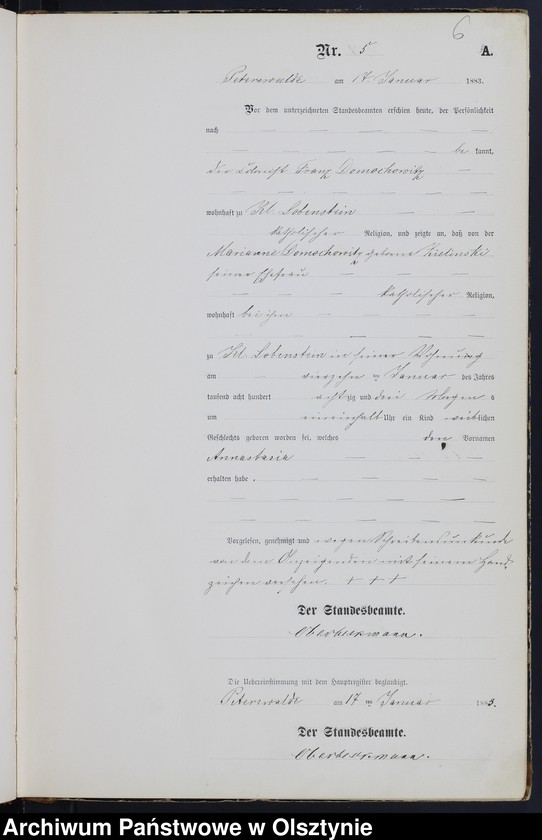 6
Nr. 5 A.
Peterswalde am 17. Januar 1883.
Vor dem unterzeichneten Standesbeamten erschien heute, der Persönlichkeit
nach
be kannt,
der Franz Domochowitz
wohnhaft zu Kl. Lobenstein
katholischer Religion, und zeigte an, daß von der
Marianne Domochowitz geborene Zielinski
seiner Ehefrau
katholischer Religion,
wohnhaft bei ihm
zu Kl. Lobenstein in seiner Wohnung
am vierzehn ten Januar des Jahres
tausend acht hundert achtzig und drei
um eineinhalb Uhr ein Kind weiblichen
Geschlechts geboren worden sei, welches den Vornamen
Annastasia
erhalten habe.
Vorgelesen, genehmigt und wegen Schreibensunkunde
von dem Anzeigenden mit seinem Hand-
zeichen versehen. + + +
Der Standesbeamte.
Oberbeckmann.
Die Uebereinstimmung mit dem Hauptregister beglaubigt.
Peterswalde am 17 ten Januar 1883.
Der Standesbeamte.
Oberbeckmann.
Archiwum Państwowe w Olsztynie